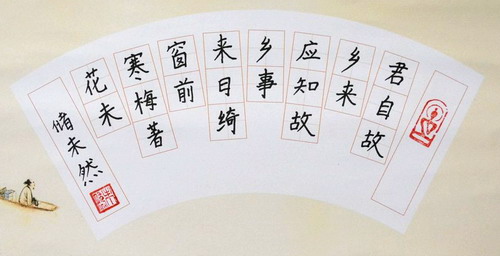 君自故
乡来
应知故
乡事
来日绮
窗前
寒梅著
花未
储未然